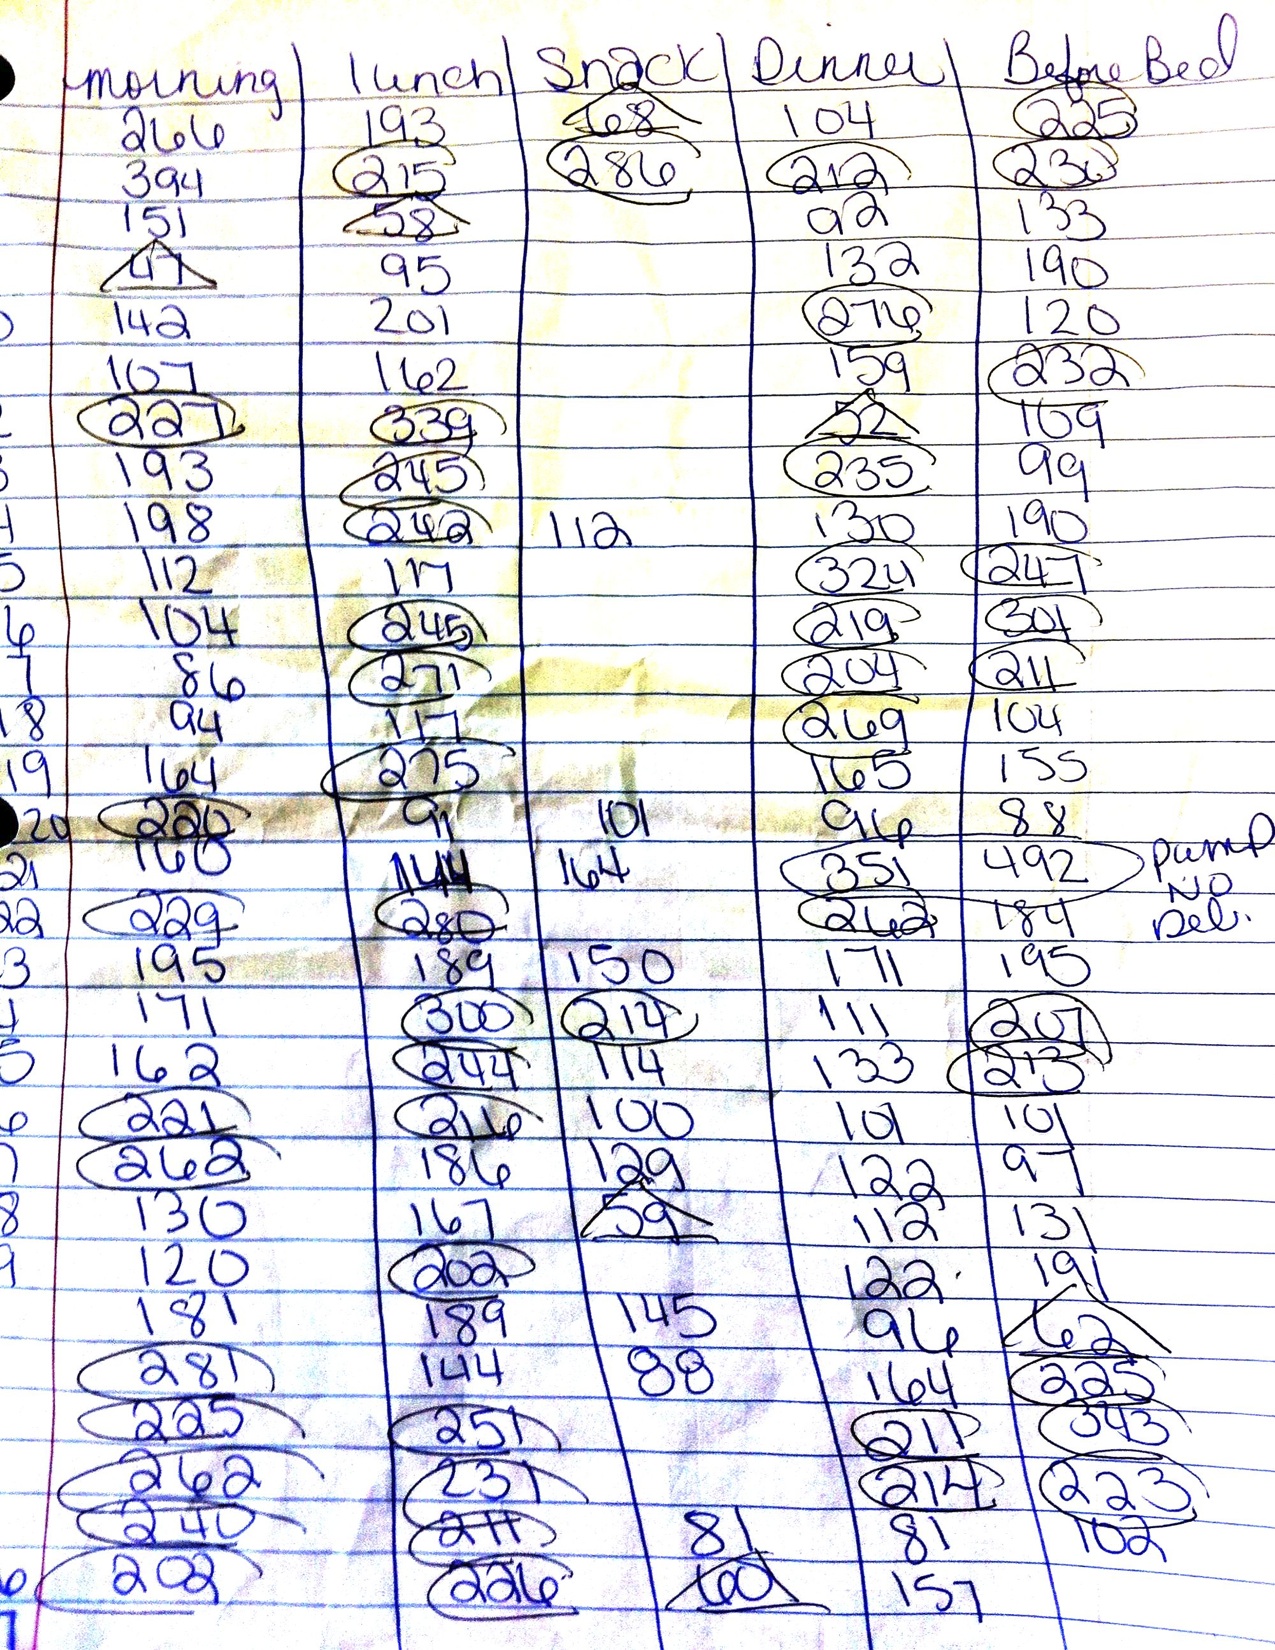 morning lunch Snack Dinner Before Bed
266 193 68 104 225
394 215 286 212 230
151 58 92 133
47 95 132 190
142 201 276 120
107 162 159 232
227 339 52 169
193 245 235 99
198 242 112 130 190
5 112 117 324 247
6 104 245 219 301
7 86 271 204 211
18 94 117 269 104
19 164 275 165 155
20 220 91 101 96 88
21 160 144 164 351 492 pump
NO
22 229 280 262 184 Del.
3 195 189 150 171 195
4 171 300 214 111 207
5 162 244 114 133 213
6 221 216 100 101 101
7 262 186 129 122 97
8 130 167 59 112 131
9 120 202 122 191
181 189 145 96 62
281 144 88 164 225
225 251 211 343
262 231 214 223
240 211 81 81 102
6 202 226 60 157